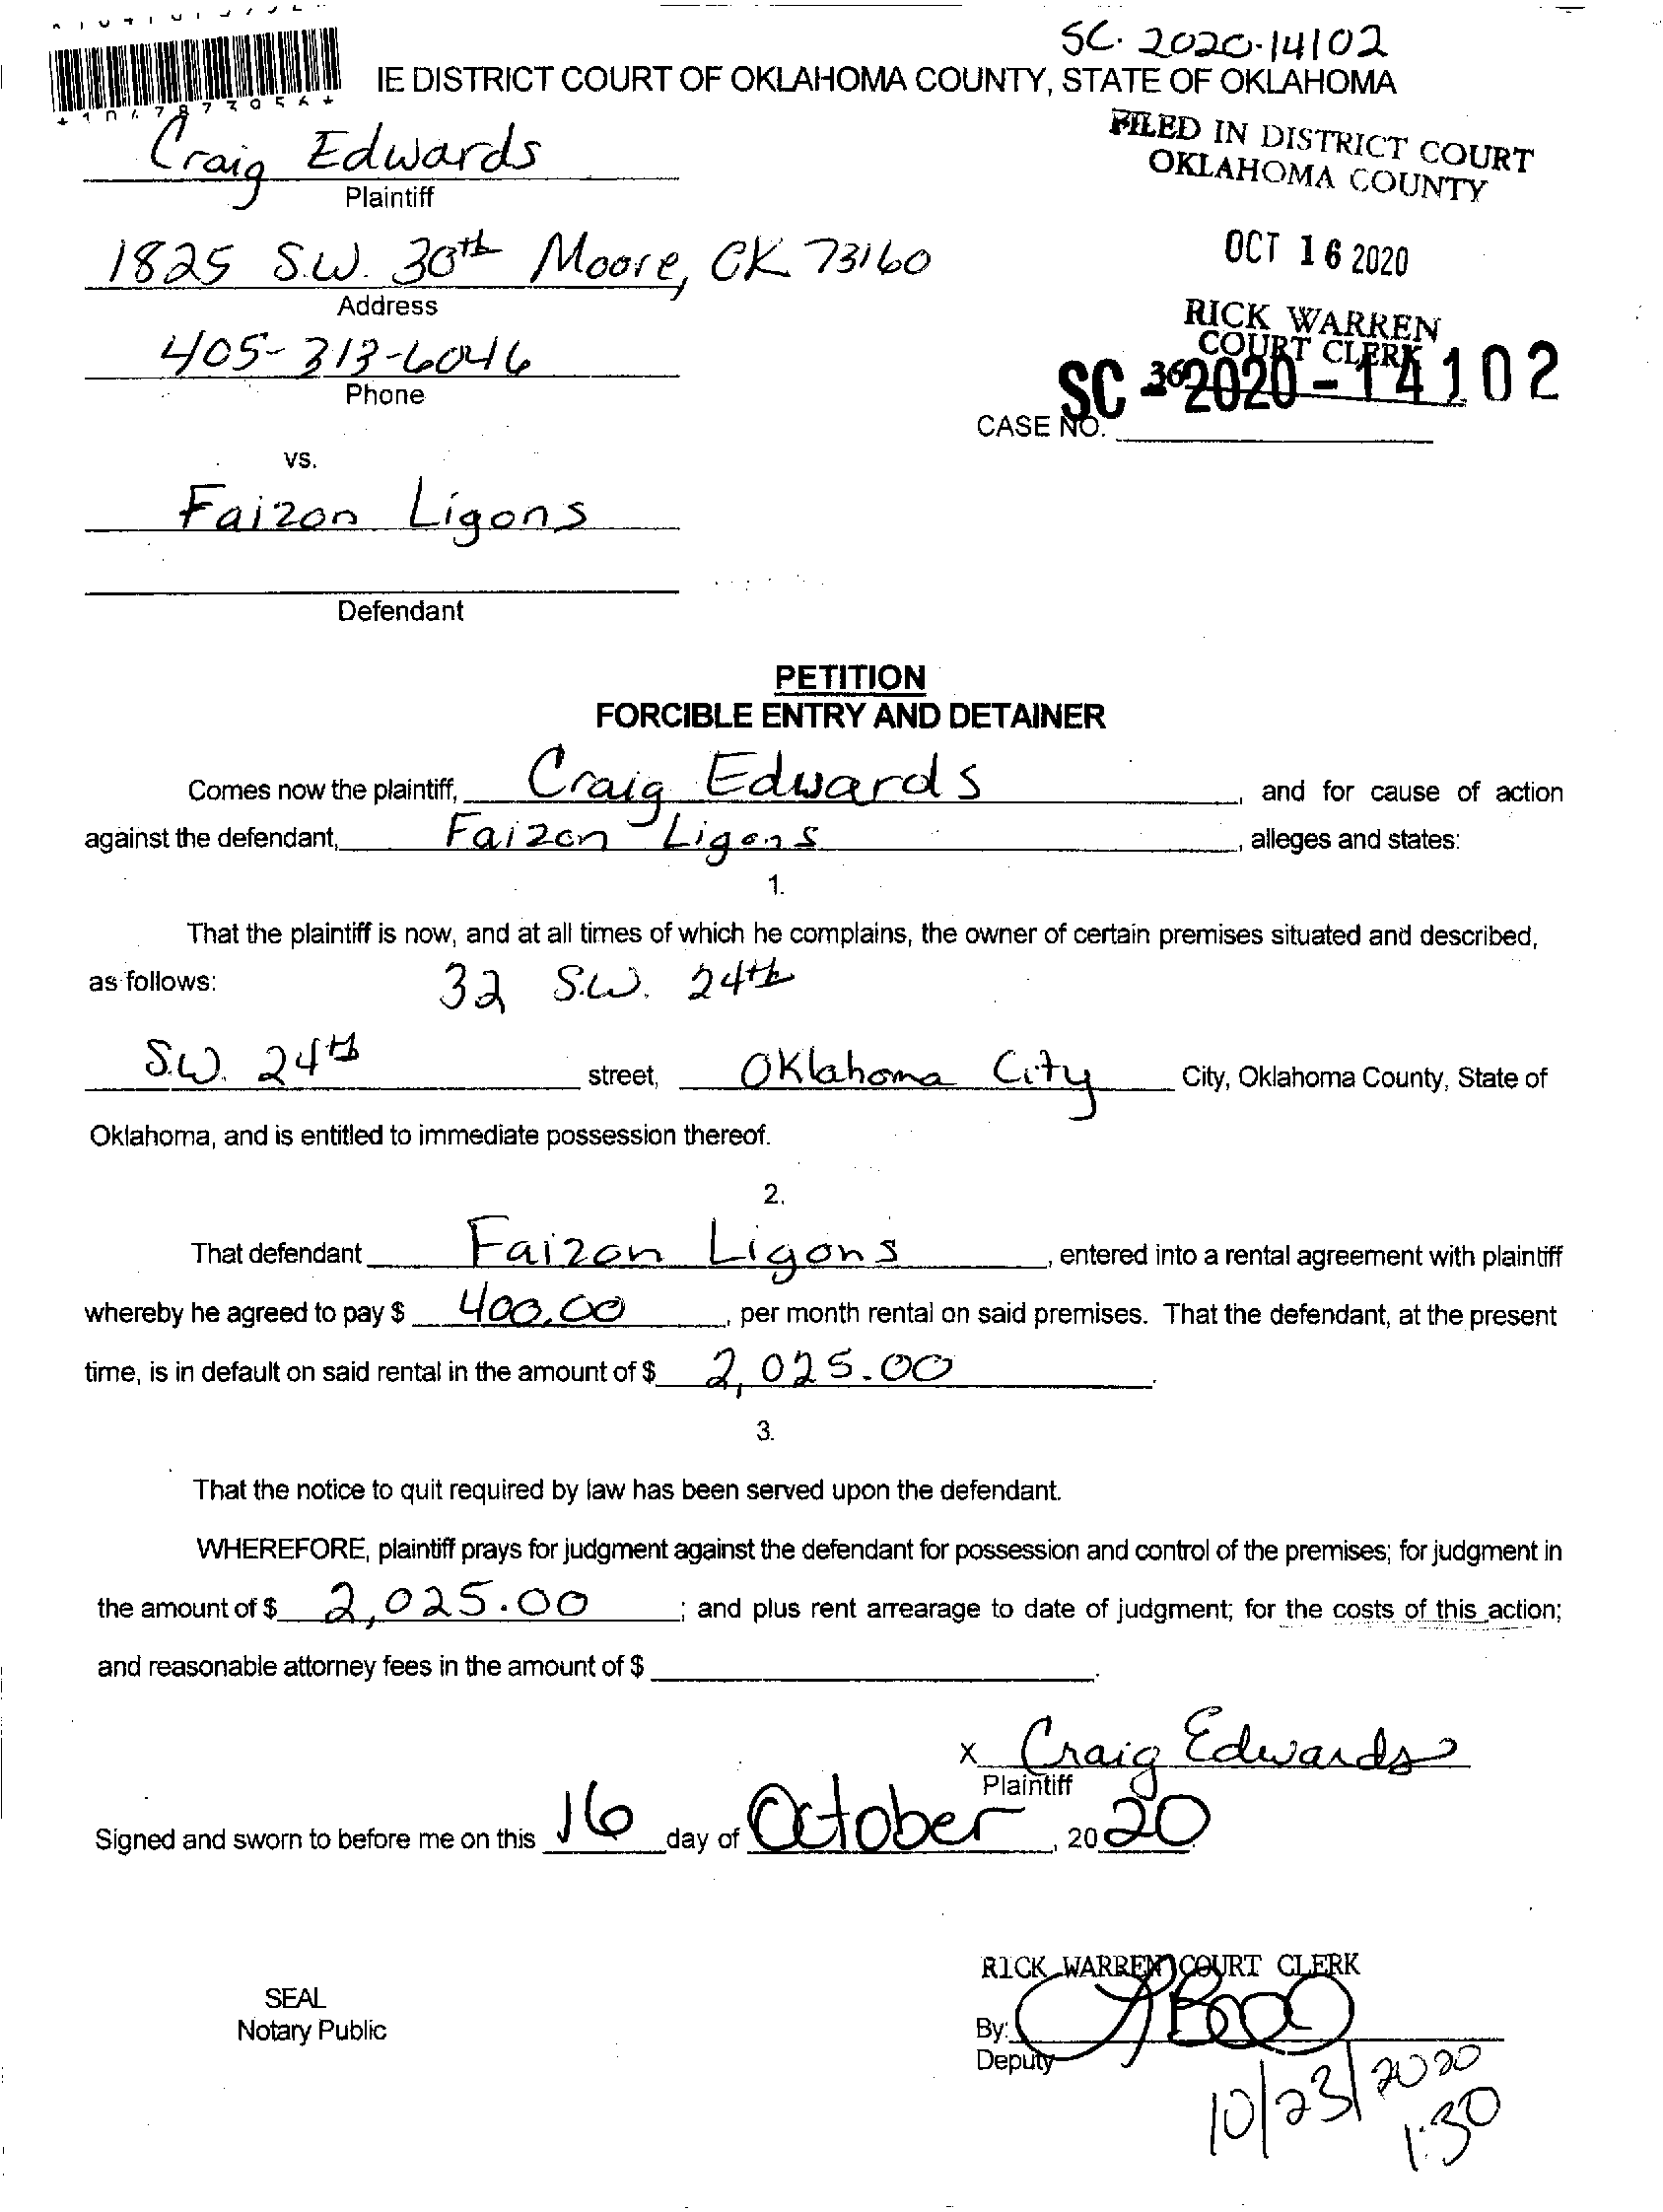 SC-2020-14102
IE DISTRICT COURT OF OKLAHOMA COUNTY, STATE OF OKLAHOMA
FILED IN DISTRICT COURT
OKLAHOMA COUNTY
Craig Edwards
Plaintiff
1825 S.W. 30th Moore, OK 73160
Address
OCT 16 2020
RICK WARREN
COURT CLERK
405-313-6046
Phone
36
SC-2020-14102
CASE NO.
vs.
Faizon Ligons
Defendant
PETITION
FORCIBLE ENTRY AND DETAINER
Comes now the plaintiff, Craig Edwards, and for cause of action
against the defendant, Faizon Ligons, alleges and states:
1.
That the plaintiff is now, and at all times of which he complains, the owner of certain premises situated and described,
as follows: 32 S.W. 24th
S.W. 24th street, Oklahoma City City, Oklahoma County, State of
Oklahoma, and is entitled to immediate possession thereof.
2.
That defendant Faizon Ligons, entered into a rental agreement with plaintiff
whereby he agreed to pay $ 400.00, per month rental on said premises. That the defendant, at the present
time, is in default on said rental in the amount of $ 2,025.00.
3.
That the notice to quit required by law has been served upon the defendant.
WHEREFORE, plaintiff prays for judgment against the defendant for possession and control of the premises; for judgment in
the amount of $ 2,025.00; and plus rent arrearage to date of judgment; for the costs of this action;
and reasonable attorney fees in the amount of $ .
x Craig Edwards
Plaintiff
Signed and sworn to before me on this 16 day of October, 2020
RICK WARREN COURT CLERK
SEAL
Notary Public
By:
Deputy
10/23/2020
1:30